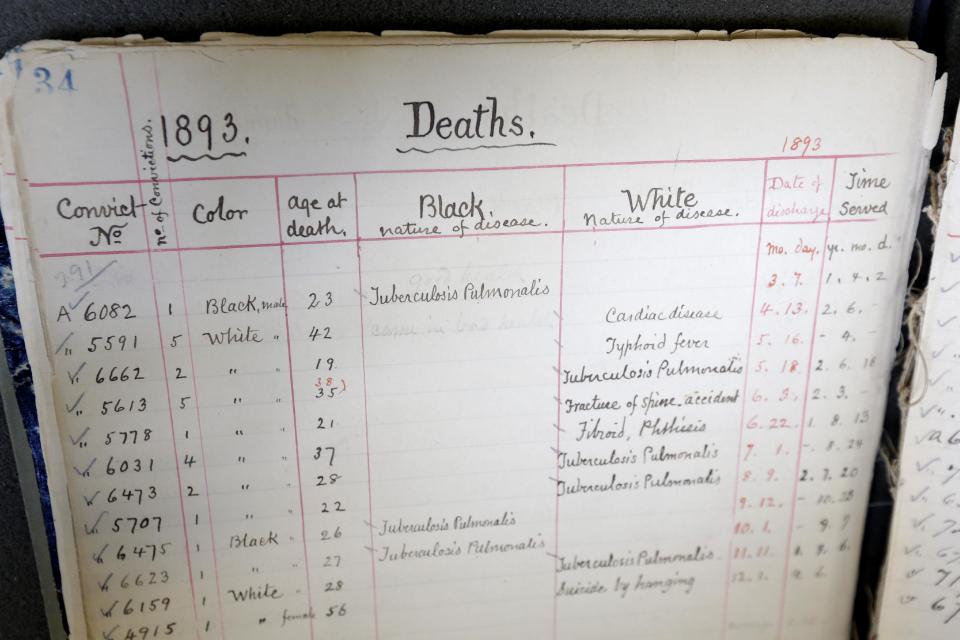 34
1893. Deaths.
1893
Convict No
no of Convictions.
Color
age at death.
Black. nature of disease.
White nature of disease.
Date of discharge
Time Served
mo. day. yr. mo. d.
291
A 6082 1 Black, male 23 Tuberculosis Pulmonalis 3. 7. 1. 4. 2
" 5591 5 White " 42 Cardiac disease 4. 13. 2. 6. -
" 6662 2 " 19 Typhoid fever 5. 16. - 4. -
38)
" 5613 5 " " 35 Tuberculosis Pulmonalis 5. 18. 2. 6. 18
" 5778 1 " " 21 Fracture of spine. accident 6. 3. 2. 3. -
" 6031 4 " " 37 Fibroid, Phthisis 6. 22. 1. 8. 13
" 6473 2 " " 28 Tuberculosis Pulmonalis 7. 1. - 8. 24
" 5707 1 " " 22 Tuberculosis Pulmonalis 8. 9. 2. 7. 20
" 6475 1 Black " 26 Tuberculosis Pulmonalis 9. 12. - 10.
" 6623 1 " " 27 Tuberculosis Pulmonalis 10. 1. - 9. 7
" 6159 1 White " 28 Tuberculosis Pulmonalis 11. 11. 6.
" 4915 1 " female 56 Suicide by hanging 12. 1. 6.